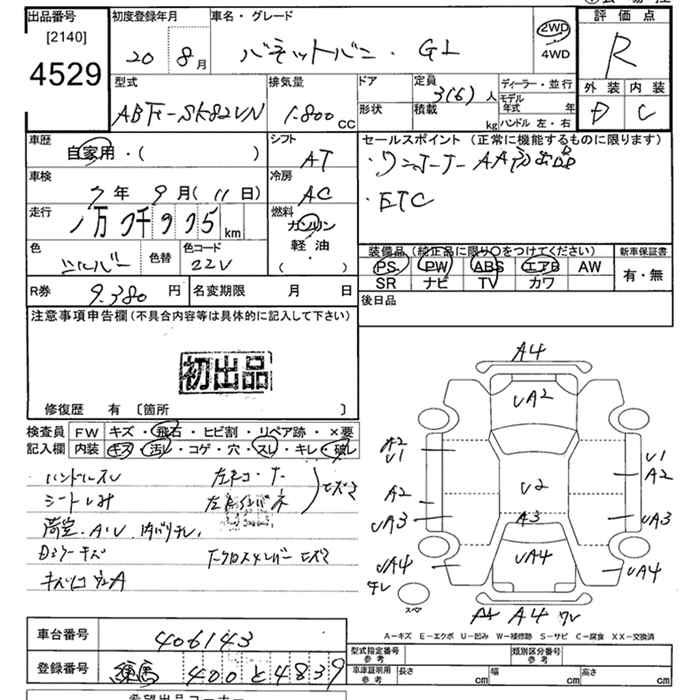 出品番号
[2140]
4529
初度登録年月
20 8月
車名・グレード
バネットバン・GL
2WD
4WD
評価点
R
外装 内装
D C
型式
ABF-SK82VN
排気量
1.800 cc
ドア
形状
定員 3(6)人
積載 kg
ディーラー・並行
モデル年式 年
ハンドル 左・右
車歴
自家用・( )
シフト
AT
セールスポイント(正常に機能するものに限ります)
・ワンオーナー AA初出品
・ETC
車検
7年 9月(11日)
冷房
AC
走行
1万7千975km
燃料
ガソリン
軽油
( )
色
シルバー
色替
色コード
22V
装備品(純正品に限り○をつけてください)
PS PW ABS エアB AW
SR ナビ TV カワ
新車保証書
有・無
R券
9.380円
名変期限 月 日
後日品
注意事項申告欄(不具合内容等は具体的に記入して下さい)
初出品
修復歴 有〔箇所 〕
検査員
記入欄
FW キズ・飛石・ヒビ割・リペア跡・×要
内装 キズ・汚レ・コゲ・穴・スレ・キレ・破レ
ハンドルスレ
シートしみ
荷室・A・U
下クロスメンバー
A4
UA2
A2
U1
U2
U1
A2
A2
UA3
A3
UA3
UA4
UA4
UA4
スペア
A4
A−キズ E−エクボ U−凹み W−補修跡 S−サビ C−腐食 XX−交換済
車台番号
406143
登録番号
練馬 400 と 4839
型式指定番号
参考
類別区分番号
参考
車庫証明用
参考
長さ cm 幅 cm 高さ cm
希望出品コーナー